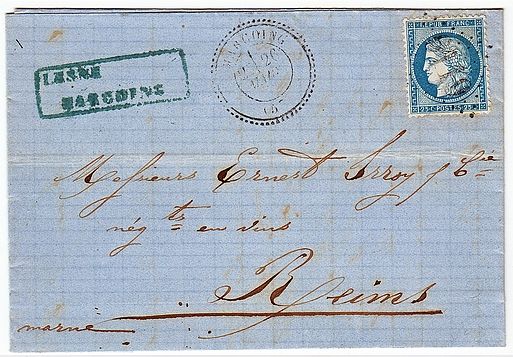 LESNE
MARCOING
MARCOING
REPUB. FRANC.
25 C. POSTES 25 C.
Messieurs Ernest Irroy & Cie
négts en vins
Reims
marne